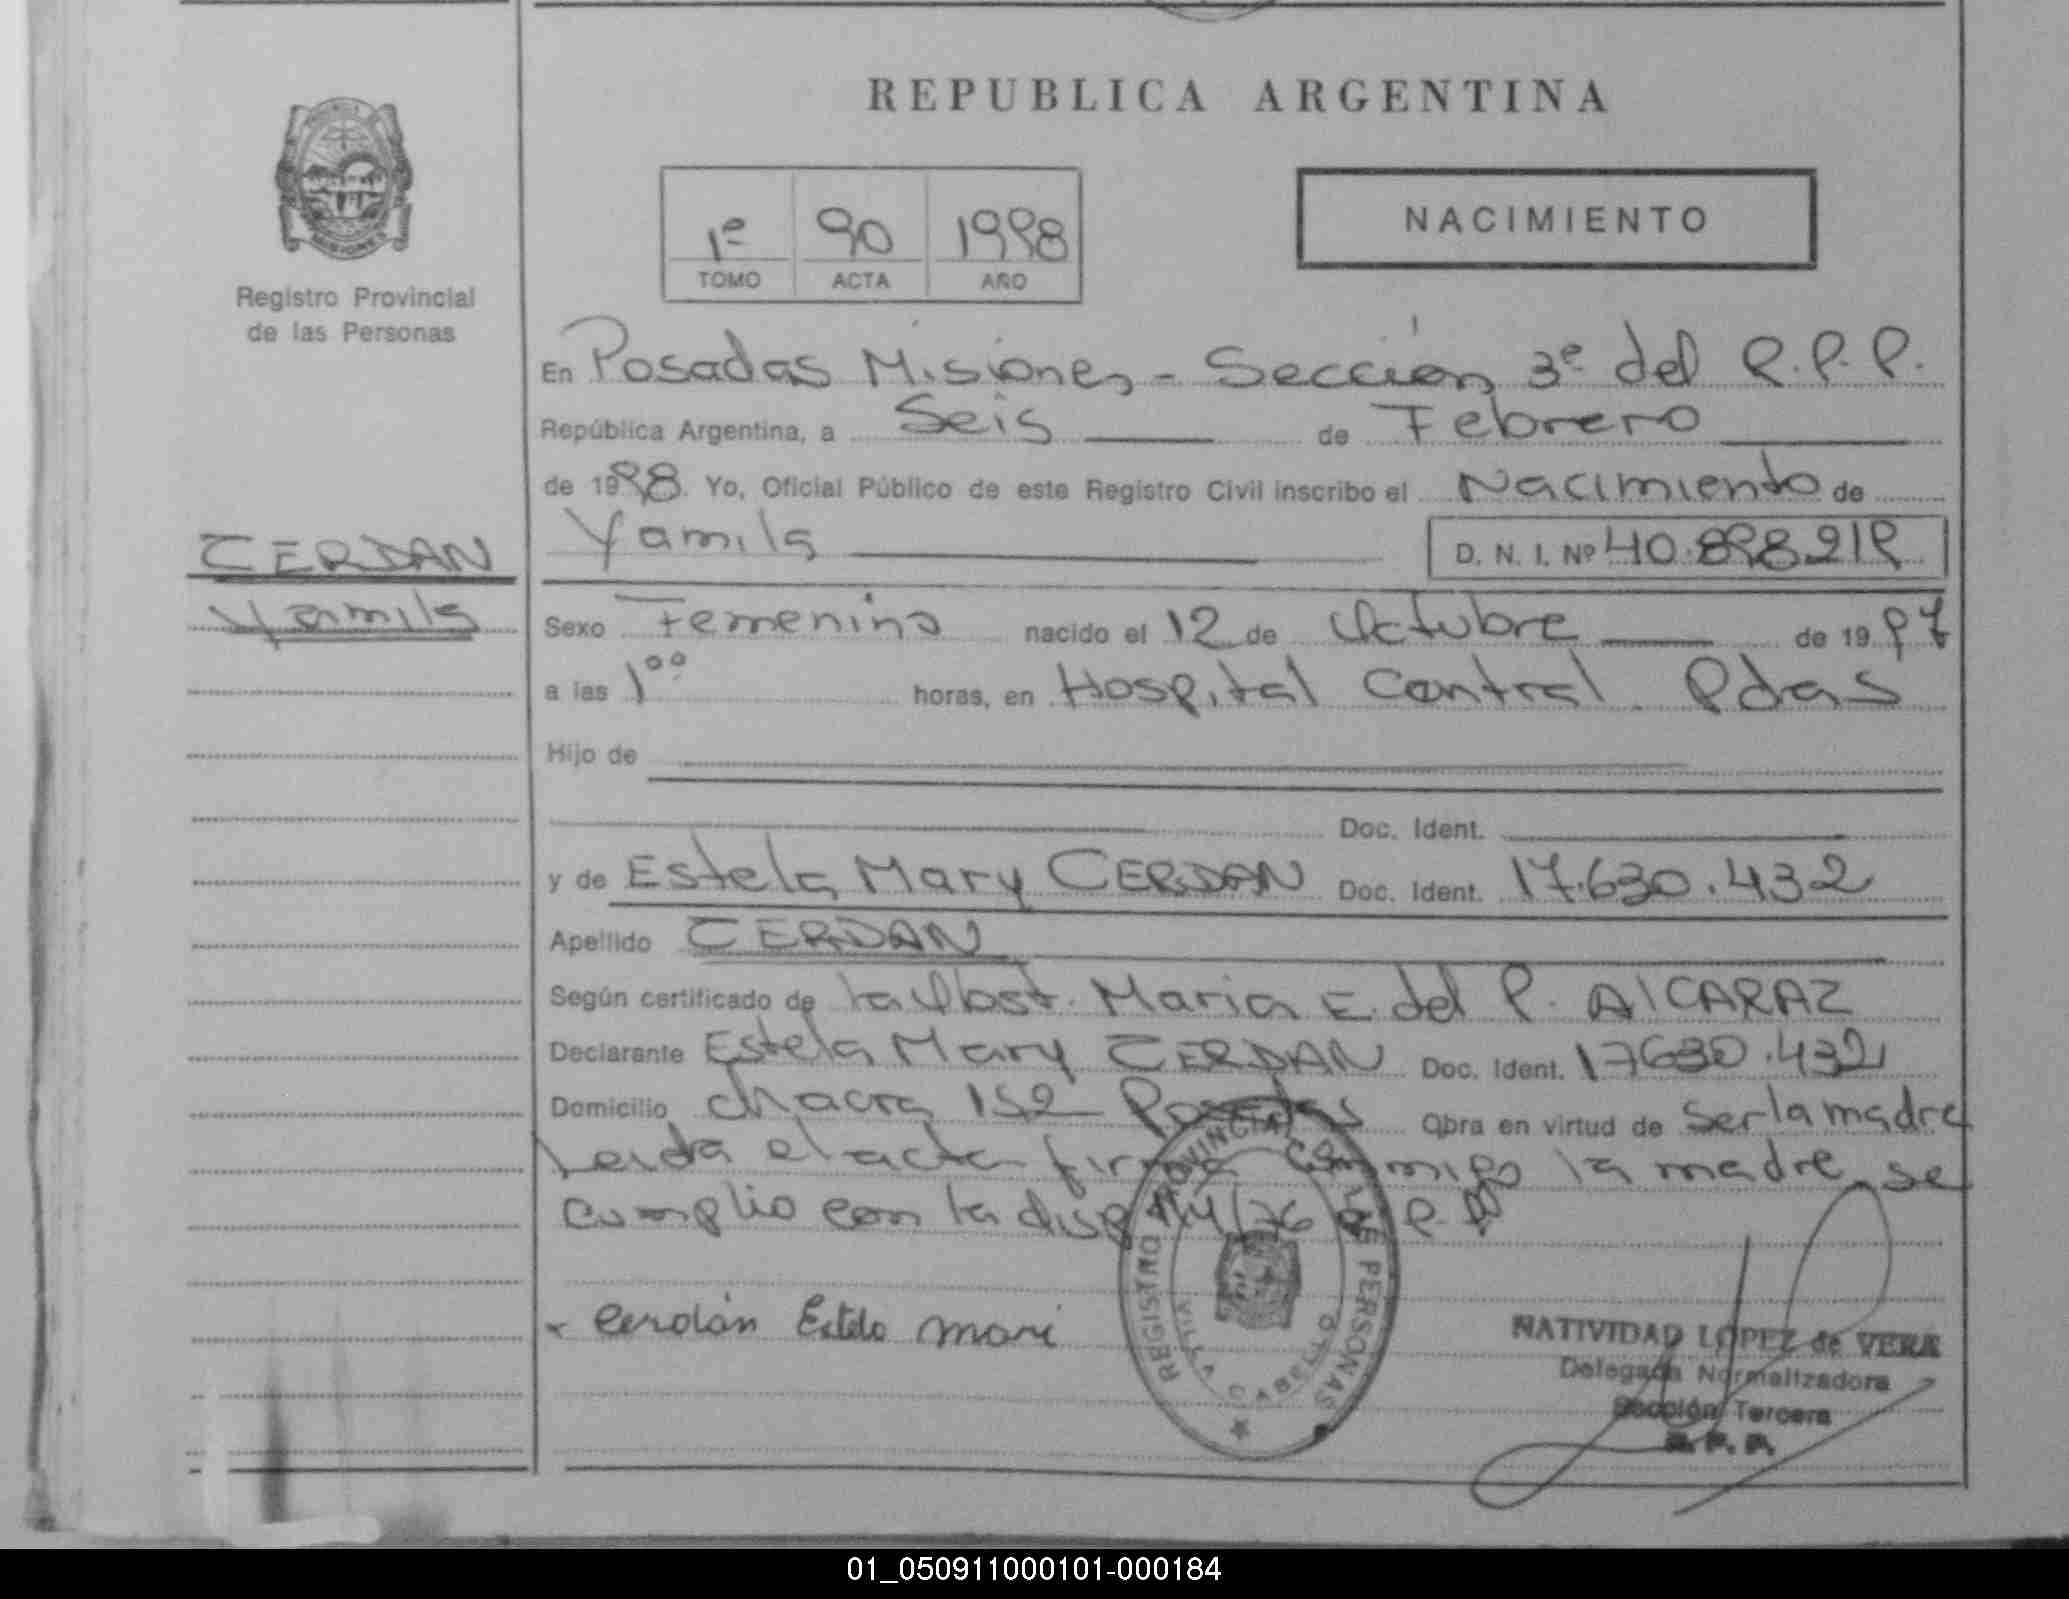 REPUBLICA ARGENTINA
MISIONES
Registro Provincial
de las Personas
1º 90 1998
TOMO ACTA AÑO
NACIMIENTO
En Posadas Misiones - Sección 3º del R.P.P.
República Argentina, a Seis de Febrero
de 1998. Yo, Oficial Público de este Registro Civil inscribo el Nacimiento de
CERDAN
Yamila
Yamila D. N. I. Nº 40.898.219
Sexo Femenino nacido el 12 de Octubre de 1997
a las 1⁰⁰ horas, en Hospital Central Pdas
Hijo de
Doc. Ident.
y de Estela Mary CERDAN Doc. Ident. 17.630.432
Apellido CERDAN
Según certificado de la Obst. Maria E. del P. AlCARAZ
Declarante Estela Mary CERDAN Doc. Ident. 17630.432
Domicilio chacra 152 Posadas Obra en virtud de ser la madre
Leida el acta firma conmigo la madre se
cumplio con la disp
Cerdán Estela Mari
REGISTRO PROVINCIAL DE LAS PERSONAS
VILLA CABELLO
NATIVIDAD LOPEZ de VERA
Delegada Normalizadora
Sección Tercera
R. P. P.
01_050911000101-000184